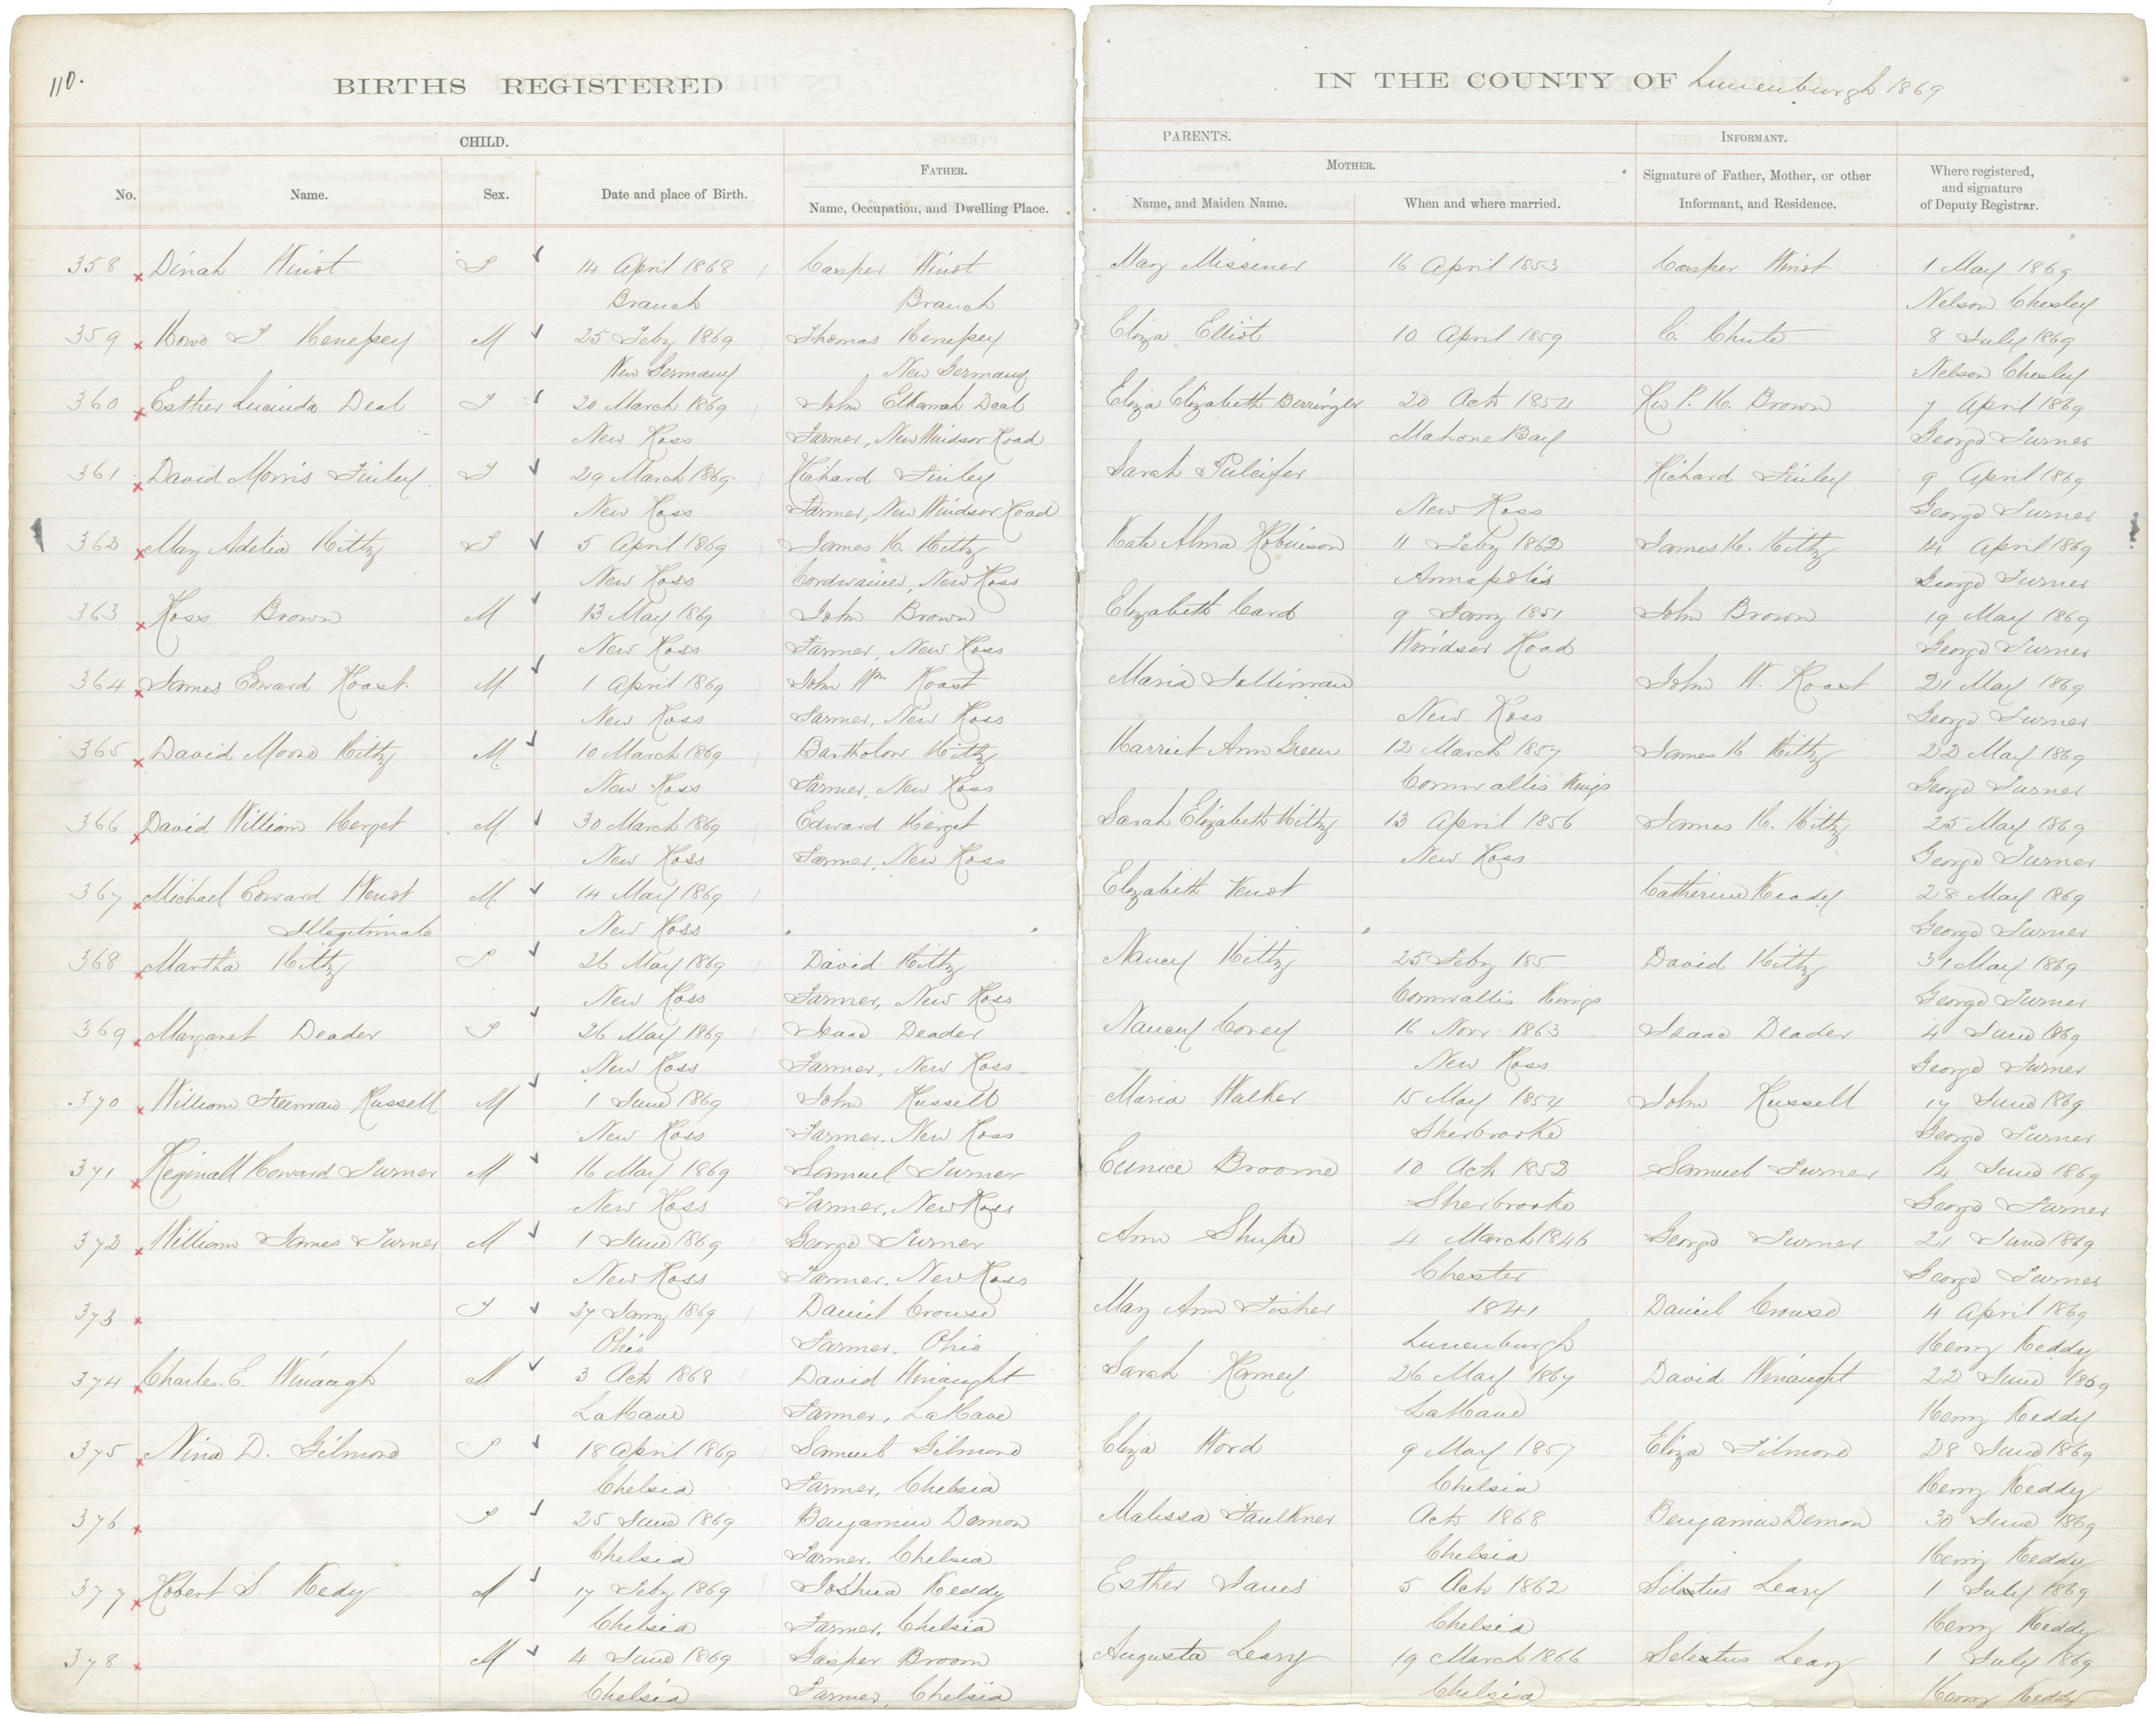 110.
BIRTHS REGISTERED IN THE COUNTY OF Lunenburgh 1869
CHILD. PARENTS. INFORMANT.
FATHER. MOTHER.
No. Name. Sex. Date and place of Birth. Name, Occupation, and Dwelling Place. Name, and Maiden Name. When and where married. Signature of Father, Mother, or other Informant, and Residence. Where registered, and signature of Deputy Registrar.
358 Dinah Winot F 14 April 1868 Casper Winot Mary Missener 16 April 1853 Casper Winot 1 May 1869
Branch Branch Nelson Chesley
359 M 25 Feby 1869 Thomas Eliza Elliot 10 April 1859 C. Chute 8 July 1869
New Germany New Germany Nelson Chesley
360 Esther Lucinda Deal F 20 March 1869 John Elkanah Deal Eliza Elizabeth Berringer 20 Octr 1854 Rev P. H. Brown 7 April 1869
New Ross Farmer, New Windsor Road Mahone Bay George Turner
361 David Morris Finley F 29 March 1869 Richard Finley Sarah Pulcifer Richard Finley 9 April 1869
New Ross Farmer, New Windsor Road New Ross George Turner
362 May Adelia Hiltz F 5 April 1869 James H. Hiltz Kate Alma Robinson 11 Feby 1862 James H. Hiltz 14 April 1869
New Ross Cordwainer, New Ross Annapolis George Turner
363 Ross Brown M 13 May 1869 John Brown Elizabeth Card 9 Jany 1851 John Brown 19 May 1869
New Ross Farmer, New Ross Windsor Road George Turner
364 James Edward Roast M 1 April 1869 John Wm Roast Maria John W. Roast 21 May 1869
New Ross Farmer, New Ross New Ross George Turner
365 David Moore Hiltz M. 10 March 1869 Bartholow Hiltz Harriet Ann Green 12 March 1857 James H Hiltz 22 May 1869
New Ross Farmer, New Ross Cornwallis Kings George Turner
366 David William Herget M. 30 March 1869 Edward Herget Sarah Elizabeth Hiltz 13 April 1856 James H. Hiltz 25 May 1869
New Ross Farmer, New Ross New Ross George Turner
367 Michael Edward Venot M. 14 May 1869 Elizabeth Venot Catherine Keady 28 May 1869
Illegitimate New Ross George Turner
368 Martha Hiltz F 26 May 1869 David Hiltz Nancy Hiltz 25 Feby 185 David Hiltz 31 May 1869
New Ross Farmer, New Ross Cornwallis Kings George Turner
369 Margaret Deader F 26 May 1869 Isaac Deader Nancy Corey 16 Novr 1863 Isaac Deader 4 June 1869
New Ross Farmer, New Ross New Ross George Turner
370 William Freeman Russell M 1 June 1869 John Russell Maria Walker 15 May 1854 John Russell 17 June 1869
New Ross Farmer, New Ross Sherbrooke George Turner
371 Reginall Coward Turner M 16 May 1869 Samuel Turner Eunice Broome 10 Octr 1852 Samuel Turner 14 June 1869
New Ross Farmer, New Ross Sherbrooke George Turner
372 William James Turner M 1 June 1869 George Turner Ann Shupe 4 March 1846 George Turner 21 June 1869
New Ross Farmer, New Ross Chester George Turner
373 F 27 Jany 1869 Daniel Crouse Mary Ann Fisher 1841 Daniel Crouse 4 April 1869
Ohio Farmer, Ohio Lunenburgh Henry Keddy
374 Charles. E. Winaugh M 3 Octr 1868 David Winaught Sarah Ramey 26 May 1867 David Winaught 22 June 1869
LaHave Farmer, LaHave LaHave Henry Keddy
375 Nina D. Gilmore F 18 April 1869 Samuel Gilmore Eliza Word 9 May 1857 Eliza Filmore 28 June 1869
Chelsia Farmer, Chelsia Chelsia Henry Keddy
376 F 25 June 1869 Benjamin Demon Malissa Faulkner Octr 1868 Benjamin Demon 30 June 1869
Chelsia Farmer, Chelsia Chelsia Henry Keddy
377 Robert S. Kedy M 17 Feby 1869 Joshua Keddy Esther Janes 5 Octr 1862 Silestus Leary 1 July 1869
Chelsia Farmer, Chelsia Chelsia Henry Keddy
378 M 4 June 1869 Gasper Broom Augusta Leary 19 March 1866 Selestus Leary 1 July 1869
Chelsia Farmer, Chelsia Chelsia Henry Keddy